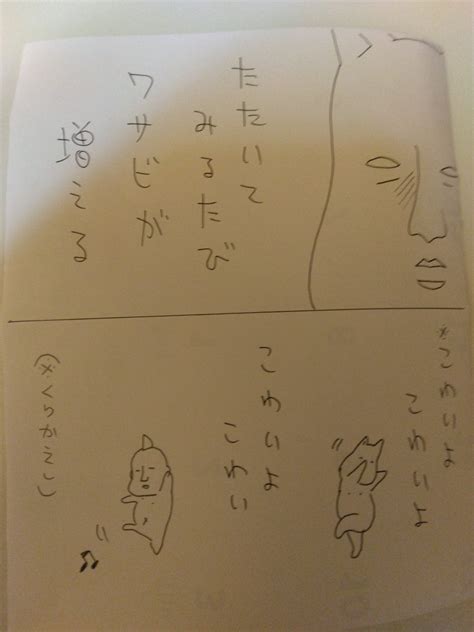 たたいて
みるたび
ワサビが
増える
※こわいよ
こわいよ
こわいよ
こわい
(※くりかえし)